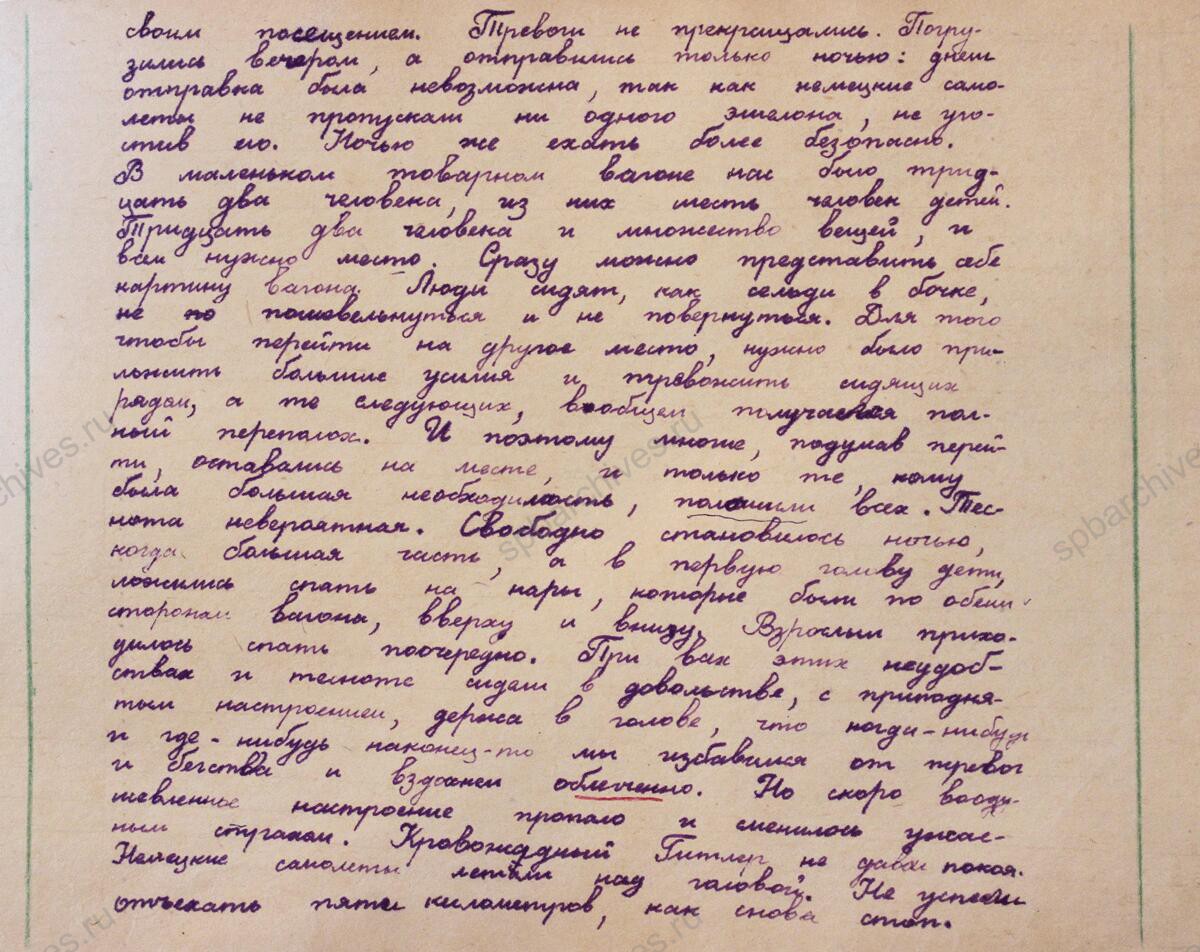 своим посещением. Тревоги не прекращались. Погру-
зились вечером, а отправились только ночью: днем
отправка была невозможна, так как немецкие само-
леты не пропускали ни одного эшелона, не уго-
стив его. Ночью же ехать более безопасно.
В маленьком товарном вагоне нас было трид-
цать два человека, из них шесть человек детей.
Тридцать два человека и множество вещей, и
всем нужно место. Сразу можно представить себе
картину вагона. Люди сидят, как сельди в бочке,
не по пошевельнуться и не повернуться. Для того
чтобы перейти на другое место, нужно было при-
ложить большие усилия и тревожить сидящих
рядом, а те следующих, вообщем получался пол-
ный переполох. И поэтому многие, подумав перей-
ти, оставались на месте, и только те, кому
была большая необходимость, полошили всех. Тес-
нота невероятная. Свободно становилось ночью,
когда большая часть, а в первую голову дети,
ложились спать на нары, которые были по обеим
сторонам вагона, вверху и внизу. Взрослым прихо-
дилось спать поочередно. При всех этих неудоб-
ствах и тесноте сидели в довольстве, с приподня-
тым настроением, держа в голове, что когда-нибудь
и где-нибудь наконец-то мы избавимся от тревог
и бегства и вздохнем облегченно. Но скоро вооду-
шевленное настроение пропало и сменилось ужас-
ным страхом. Кровожадный Гитлер не давал покоя.
Немецкие самолеты летели над головой. Не успели
отъехать пяти километров, как снова стоп.
spbarchives.ru